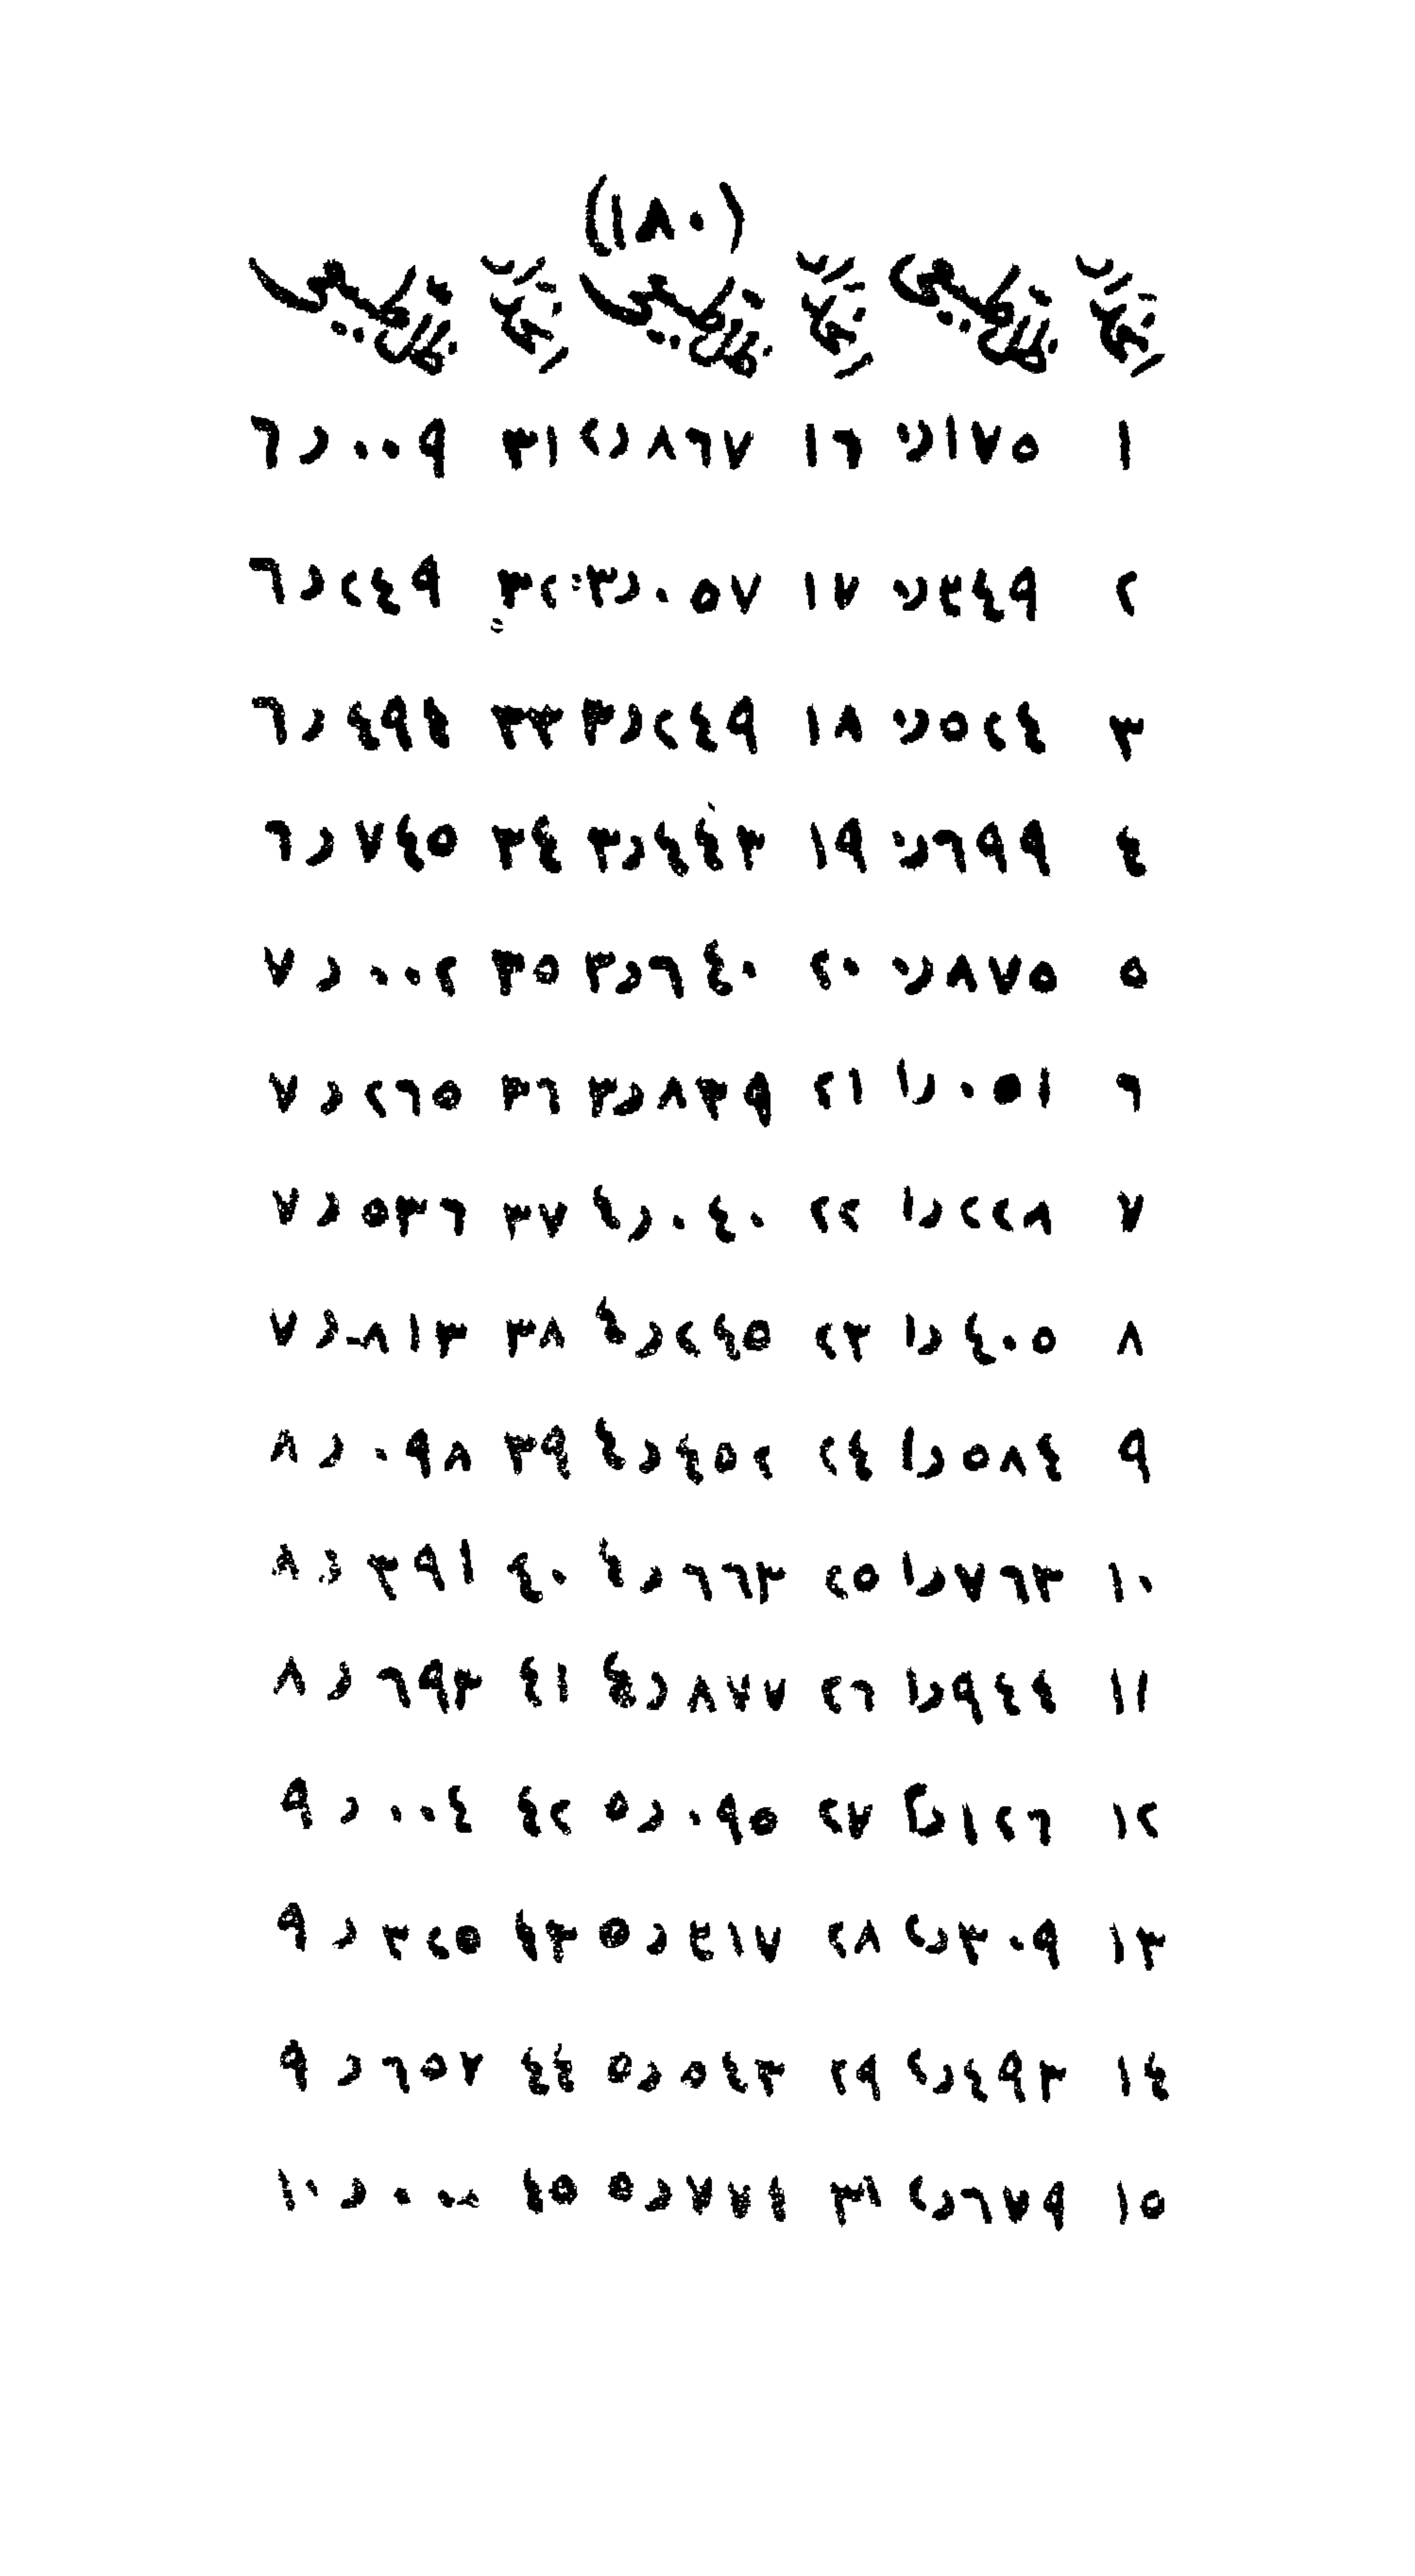 (١٨٠)
ظل طبيعي ظل طبيعي ظل طبيعي
١ ٠٫١٧٥ ١٦ ٢٫٨٦٧ ٣١ ٦٫٠٠٩
٢ ٠٫٣٤٩ ١٧ ٣٫٠٥٧ ٣٢ ٦٫٢٤٩
٣ ٠٫٥٢٤ ١٨ ٣٫٢٤٩ ٣٣ ٦٫٤٩٤
٤ ٠٫٦٩٩ ١٩ ٣٫٤٤٣ ٣٤ ٦٫٧٤٥
٥ ٠٫٨٧٥ ٢٠ ٣٫٦٤٠ ٣٥ ٧٫٠٠٢
٦ ١٫٠٥١ ٢١ ٣٫٨٣٩ ٣٦ ٧٫٢٦٥
٧ ١٫٢٢٨ ٢٢ ٤٫٠٤٠ ٣٧ ٧٫٥٣٦
٨ ١٫٤٠٥ ٢٣ ٤٫٢٤٥ ٣٨ ٧٫٨١٣
٩ ١٫٥٨٤ ٢٤ ٤٫٤٥٢ ٣٩ ٨٫٠٩٨
١٠ ١٫٧٦٣ ٢٥ ٤٫٦٦٣ ٤٠ ٨٫٣٩١
١١ ١٫٩٤٤ ٢٦ ٤٫٨٧٧ ٤١ ٨٫٦٩٣
١٢ ٢٫١٢٦ ٢٧ ٥٫٠٩٥ ٤٢ ٩٫٠٠٤
١٣ ٢٫٣٠٩ ٢٨ ٥٫٣١٧ ٤٣ ٩٫٣٢٥
١٤ ٢٫٤٩٣ ٢٩ ٥٫٥٤٣ ٤٤ ٩٫٦٥٧
١٥ ٢٫٦٧٩ ٥٫٧٧٤ ٤٥ ١٠٫٠٠٠